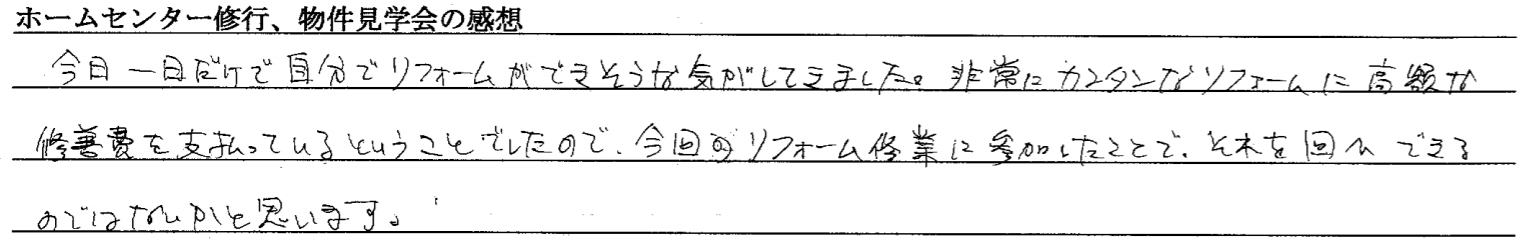 ホームセンター修行、物件見学会の感想
今日一日だけで自分でリフォームができそうな気がしてきました。非常にカンタンなリフォームに高額な
修善費を支払っているということでしたので、今回のリフォーム修業に参加したことで、それを回ひできる
のではないかと思います。